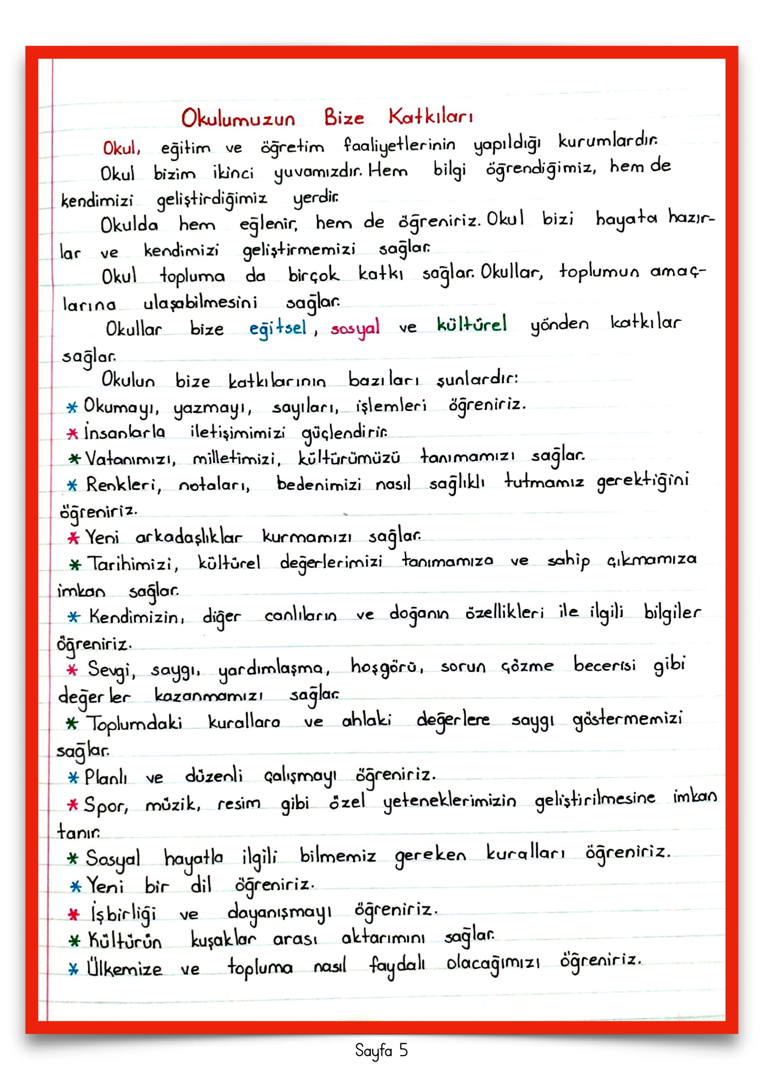 Okulumuzun Bize Katkıları
Okul, eğitim ve öğretim faaliyetlerinin yapıldığı kurumlardır.
Okul bizim ikinci yuvamızdır. Hem bilgi öğrendiğimiz, hem de
kendimizi geliştirdiğimiz yerdir.
Okulda hem eğlenir, hem de öğreniriz. Okul bizi hayata hazır-
lar ve kendimizi geliştirmemizi sağlar.
Okul topluma da birçok katkı sağlar. Okullar, toplumun amaç-
larına ulaşabilmesini sağlar.
Okullar bize eğitsel, sosyal ve kültürel yönden katkılar
sağlar.
Okulun bize katkılarının bazıları şunlardır:
* Okumayı, yazmayı, sayıları, işlemleri öğreniriz.
* İnsanlarla iletişimimizi güçlendirir.
* Vatanımızı, milletimizi, kültürümüzü tanımamızı sağlar.
* Renkleri, notaları, bedenimizi nasıl sağlıklı tutmamız gerektiğini
öğreniriz.
* Yeni arkadaşlıklar kurmamızı sağlar.
* Tarihimizi, kültürel değerlerimizi tanımamıza ve sahip çıkmamıza
imkan sağlar.
* Kendimizin, diğer canlıların ve doğanın özellikleri ile ilgili bilgiler
öğreniriz.
* Sevgi, saygı, yardımlaşma, hoşgörü, sorun çözme becerisi gibi
değerler kazanmamızı sağlar.
* Toplumdaki kurallara ve ahlaki değerlere saygı göstermemizi
sağlar.
* Planlı ve düzenli çalışmayı öğreniriz.
* Spor, müzik, resim gibi özel yeteneklerimizin geliştirilmesine imkan
tanır.
* Sosyal hayatla ilgili bilmemiz gereken kuralları öğreniriz.
* Yeni bir dil öğreniriz.
* İşbirliği ve dayanışmayı öğreniriz.
* Kültürün kuşaklar arası aktarımını sağlar.
* Ülkemize ve topluma nasıl faydalı olacağımızı öğreniriz.
Sayfa 5